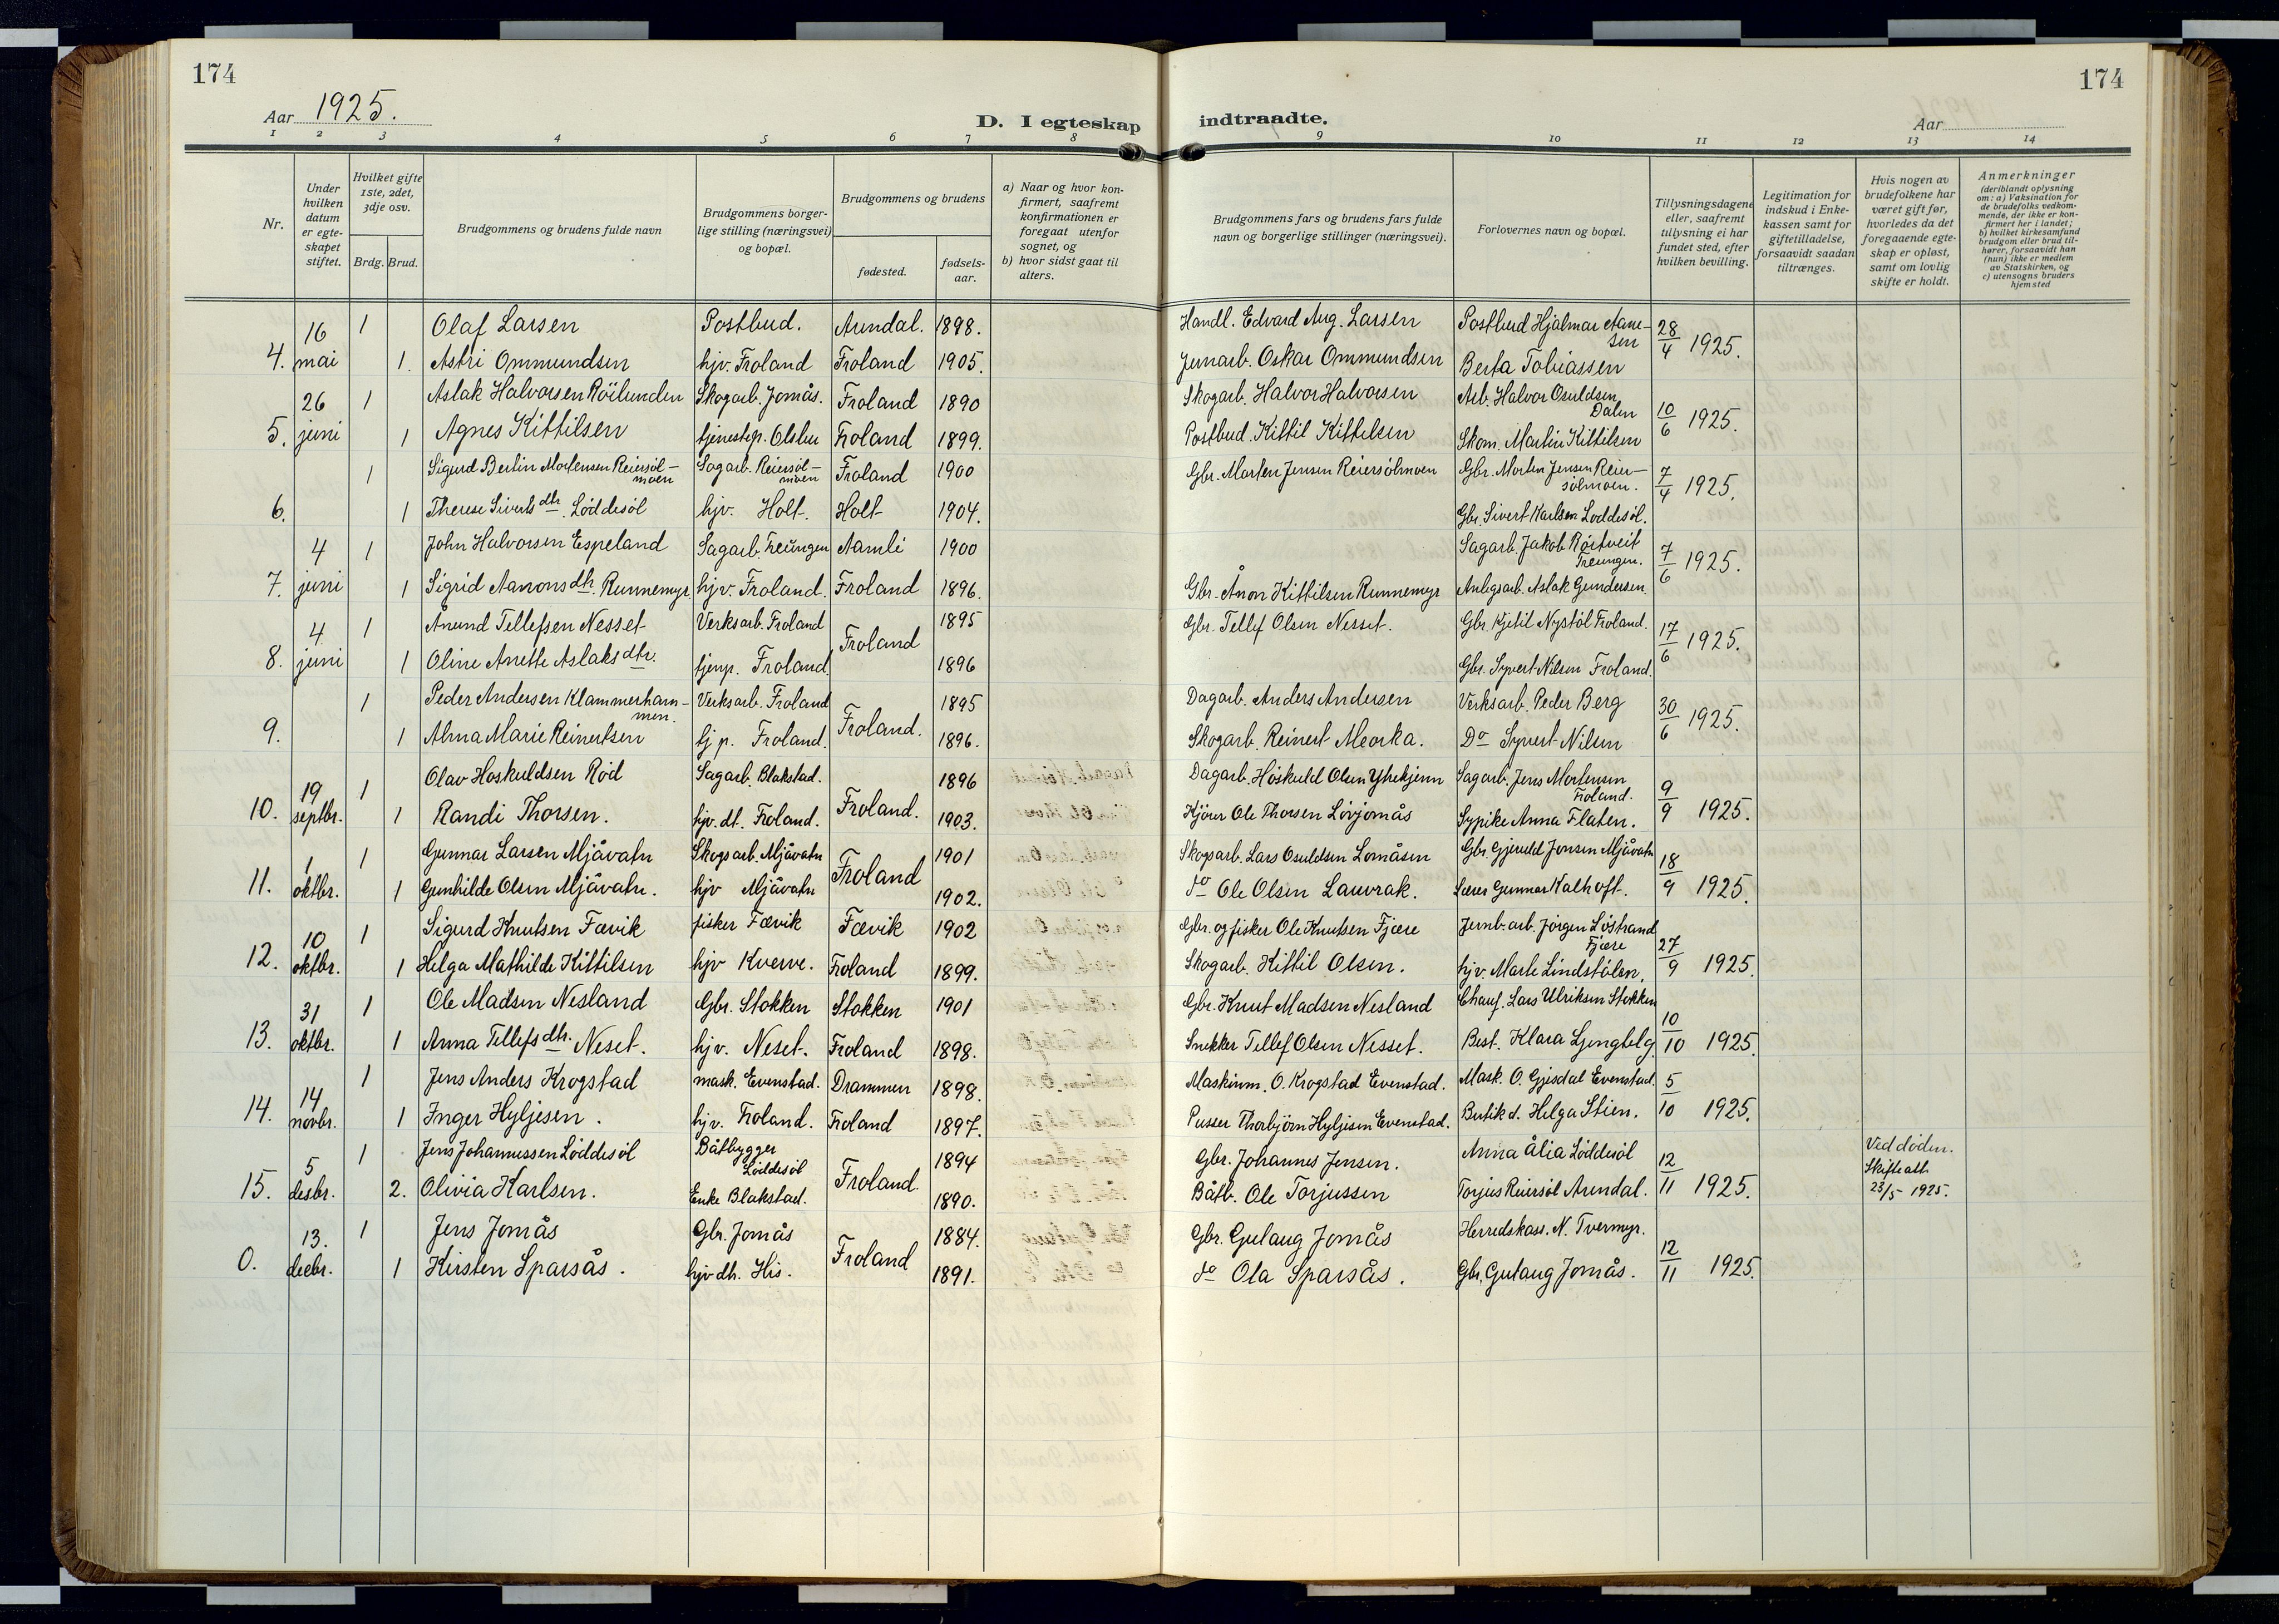 174
174
Aar 1925.
D. I egteskap indtraadte.
Aar
1 2 3 4 5 6 7 8 9 10 11 12 13 14
Nr.
Under hvilken datum er egte-skapet stiftet.
Hvilket gifte 1ste, 2det, 3dje osv.
Brdg. Brud.
Brudgommens og brudens fulde navn
Brudgommens borger-lige stilling (næringsvei) og bopæl.
Brudgommens og brudens
fødested.
fødsels-aar.
a) Naar og hvor kon-firmert, saafremt konfirmationen er foregaat utenfor sognet, og
b) hvor sidst gaat til alters.
Brudgommens fars og brudens fars fulde navn og borgerlige stillinger (næringsvei).
Forlovernes navn og bopæl.
Tillysningsdagene eller, saafremt tillysning ei har fundet sted, efter hvilken bevilling.
Legitimation for indskud i Enke-kassen samt for giftetilladelse, forsaavidt saadan tiltrænges.
Hvis nogen av brudefolkene har været gift før, hvorledes da det foregaaende egte-skap er opløst, samt om lovlig skifte er holdt.
Anmerkninger (deriblandt oplysning om: a) Vaksination for de brudefolks vedkom-mende, der ikke er kon-firmert her i landet; b) hvilket kirkesamfund brudgom eller brud til-hører, forsaavidt han (hun) ikke er medlem av Statskirken, og c) utensogns bruders hjemsted
16 1 Olaf Larsen Postbud. Arendal. 1898. Handl. Edvard Aug. Larsen Postbud Hjalmar Aanesen 28/4 1925.
4. mai 1. Astri Ommundsen hjv. Froland Froland 1905. Jernarb. Oskar Ommundsen Berta Tobiassen
26 1 Aslak Halvorsen Röilunden Skogarb. Jomås. Froland 1890 Skogarb. Halvor Halvorsen Arb. Halvor Osuldsen Dalen 10/6 1925.
5. juni 1 Agnes Kittilsen tjenestep. Olsbu Froland 1899. Postbud. Kittil Kittilsen Skom. Martin Kittilsen
1 Sigurd Bertin Mortensen Reiersöl-moen Sagarb. Reiersöl-moen Froland 1900 Gbr. Morten Jensen Reiersölmoen Gbr. Morten Jensen Reier-sölmoen. 7/4 1925.
6. 1 Therese Siverts dtr. Löddesöl hjv. Holt. Holt 1904. Gbr. Sivert Karlsen Loddesöl.
4 1 John Halvorsen Espeland Sagarb. Treungen Aamli 1900 Sagarb. Jakob Röstveit Treungen. 7/6 1925.
7. juni 1 Sigrid Aanonsdtr. Runnemyr hjv. Froland. Froland 1896. Gbr. Ånon Kittilsen Runnemyr Anlegsarb. Aslak Gundersen.
4 1 Anund Tellefsen Nesset Verksarb. Froland Froland 1895 Gbr. Tellef Olsen Nesset. Gbr. Kjetil Nystöl Froland. 17/6 1925.
8. juni 1 Oline Anette Aslaksdtr. tjenp. Froland. 1896 Gbr. Syvert Nilsen Froland.
1 Peder Andersen Klammerham-men. Verksarb. Froland Froland. 1895 Dagarb. Anders Andersen Verksarb. Peder Berg 30/6 1925.
9. 1 Alma Marie Reinertsen tj p. Froland. 1896. Skogarb. Reinert Meorka. Do Syvert Nilsen
19 1 Olav Hoskuldsen Röd Sagarb. Blakstad. Froland. 1896 Dagarb. Höskuld Olsen Ytrekjenn Sagarb. Jens Mortensen Froland. 9/9 1925.
10. septbr. 1 Randi Thorsen. hjv. dt. Froland. 1903. Kjörer Ole Thorsen Lövjomås Sypike Anna Flaten.
1 1 Gunnar Larsen Mjåvatn Skogsarb. Mjåvatn Froland 1901 Skogsarb. Lars Osuldsen Lomåsen Gbr. Gjeruld Jonsen Mjåvatn 18/9 1925.
11. oktbr. 1 Gunhilde Olsen Mjåvatn. hjv Mjåvatn 1902. do Ole Olsen Lauvrak. Lærer Gunnar Kalhoft.
10 1 Sigurd Knutsen Fævik fisker Fævik Fævik 1902 Gbr. og fisker Ole Knutsen Fjære Jernb. arb. Jörgen Löstrand Fjære 27/9 1925.
12. oktbr. 1 Helga Mathilde Kittilsen hjv Kverve. Froland 1899. Skogarb. Kittil Olsen. hjv. Marte Lindstölen.
31 1 Ole Madsen Nesland Gbr. Stokken Stokken 1901 Gbr. Knut Madsen Nesland Chauf. Lars Ulriksen Stokken 10/10 1925.
13. oktbr. 1 Anna Tellefsdtr. Neset. hjv. Neset. Froland 1898. Snekker Tellef Olsen Nesset. Best. Klara
1 Jens Anders Krogstad mask. Evenstad. Drammen 1898. Maskinm. O. Krogstad Evenstad. Mask. O. Gjesdal Evenstad. 5/10 1925.
14. 14 novbr. 1 Inger Hyljesen. hjv. Froland. Froland 1897. Pusser Thorbjörn Hyljesen Evenstad. Butikd. Helga Stien.
5 1 Jens Johannessen Löddesöl Båtbygger Löddesöl Froland. 1894 Gbr. Johannes Jensen. Anna Ålia Löddesöl 12/11 1925. Ved döden. Skifteatt. 23/5 1925.
15. desbr. 2. Olivia Karlsen. Enke Blakstad. 1890. Båtb. Ole Torjussen Torjus Reiersöl Arendal.
13. 1 Jens Jomås Gbr. Jomås Froland 1884. Gbr. Gulaug Jomås Herredskass. N. Tvermyr. 12/11 1925.
0. decbr. 1 Kirsten Sparsås. hjv dtr. His. 1891. do Ola Sparsås. Gbr. Gulaug Jomås.